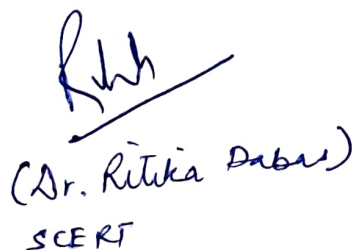 (Dr. Ritika Dabas)
SCERT